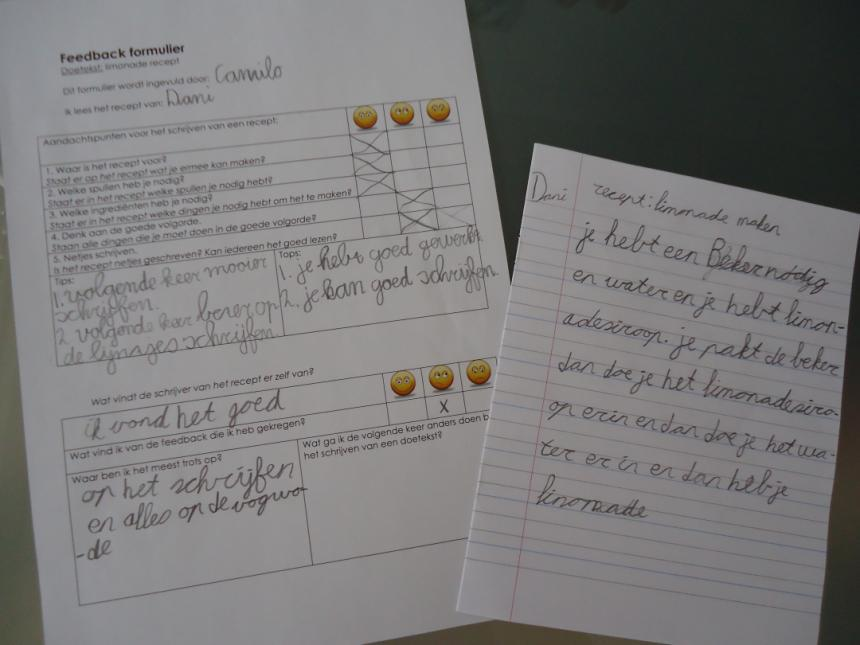 Feedback formulier
Doetekst: limonade recept
Dit formulier wordt ingevuld door: Camilo
Ik lees het recept van: Dani
Aandachtspunten voor het schrijven van een recept:
1. Waar is het recept voor?
Staat er op het recept wat je ermee kan maken?
2. Welke spullen heb je nodig?
Staat er in het recept welke spullen je nodig hebt?
3. Welke ingrediënten heb je nodig?
Staat er in het recept welke dingen je nodig hebt om het te maken?
4. Denk aan de goede volgorde.
Staan alle dingen die je moet doen in de goede volgorde?
5. Netjes schrijven.
Is het recept netjes geschreven? Kan iedereen het goed lezen?
Tips:
1. volgende keer mooier
schrijffen.
2 volgende keer beter op
de lijnages schrijffen
Tops:
1. je hebt goed gewerkt
2. je kan goed schrijffen.
Wat vindt de schrijver van het recept er zelf van?
ik vond het goed
Wat vind ik van de feedback die ik heb gekregen?
X
Waar ben ik het meest trots op?
op het schrijfen
en alles op de vogwo-
-de
Wat ga ik de volgende keer anders doen b
het schrijven van een doetekst?
Dani recept: limonade maken
je hebt een Beker nodig
en water en je hebt limon-
adesiroop. je pakt de beker
dan doe je het limonadesiro-
op erin en dan doe je het wa-
ter er in en dan heb je
limonade